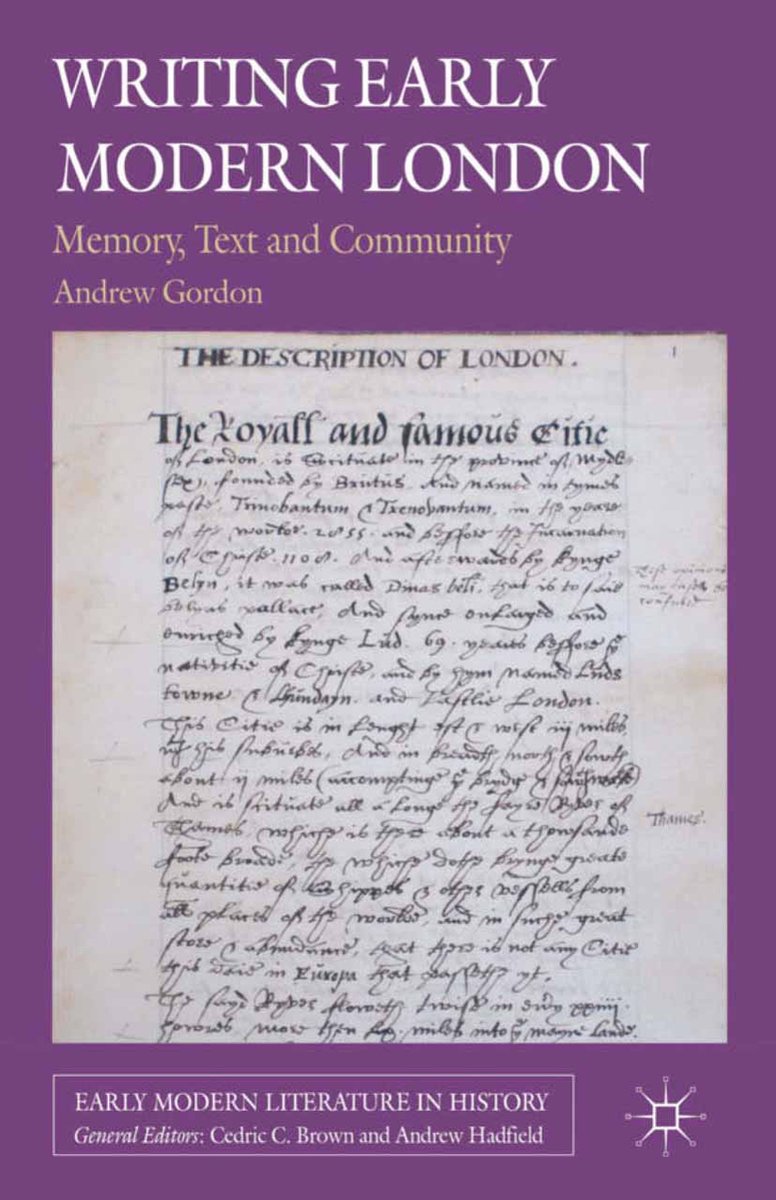 WRITING EARLY
MODERN LONDON
Memory, Text and Community
Andrew Gordon
THE DESCRIPTION OF LONDON.
1
The Royall and famous Citie
of London, is Scituate in the province of Mydle
sex, founded by Brutus, And named in tymes
paste, Trinobantum & Trenovantum, in the yeare
of the worlde. 2855. and beffore the Incarnation
of Christe. 1108. And afterwardes by kynge
Belyn, it was called Dinas beli, that is to saie
belyns pallace, And synce enlarged and
enriched by kynge Lud. 69. yeares beffore ye
nativitie of Christe, and by hym named Luds
towne. & Lhundayn. and Lastlie London.
This Citie is in Lenght est & west iij miles,
his suburbes, And in breadth, north & south
about ij miles (accomptinge ye brydge & sowthwerke)
And is scituate all a Longe the fayre Ryver of
Thames, whiche is there about a thowsande
foote broade, the whiche dothe brynge greate
quantitie of shippes & other vessells from
all places of the worlde, and in suche great
store & abundance, that there is not any Citie
this daie in Europa that passethe yt.
The sayd Ryver floweth twise in every xxiiij.
howres, more then lx. miles into ye mayne lande.
Thames.
EARLY MODERN LITERATURE IN HISTORY
General Editors: Cedric C. Brown and Andrew Hadfield